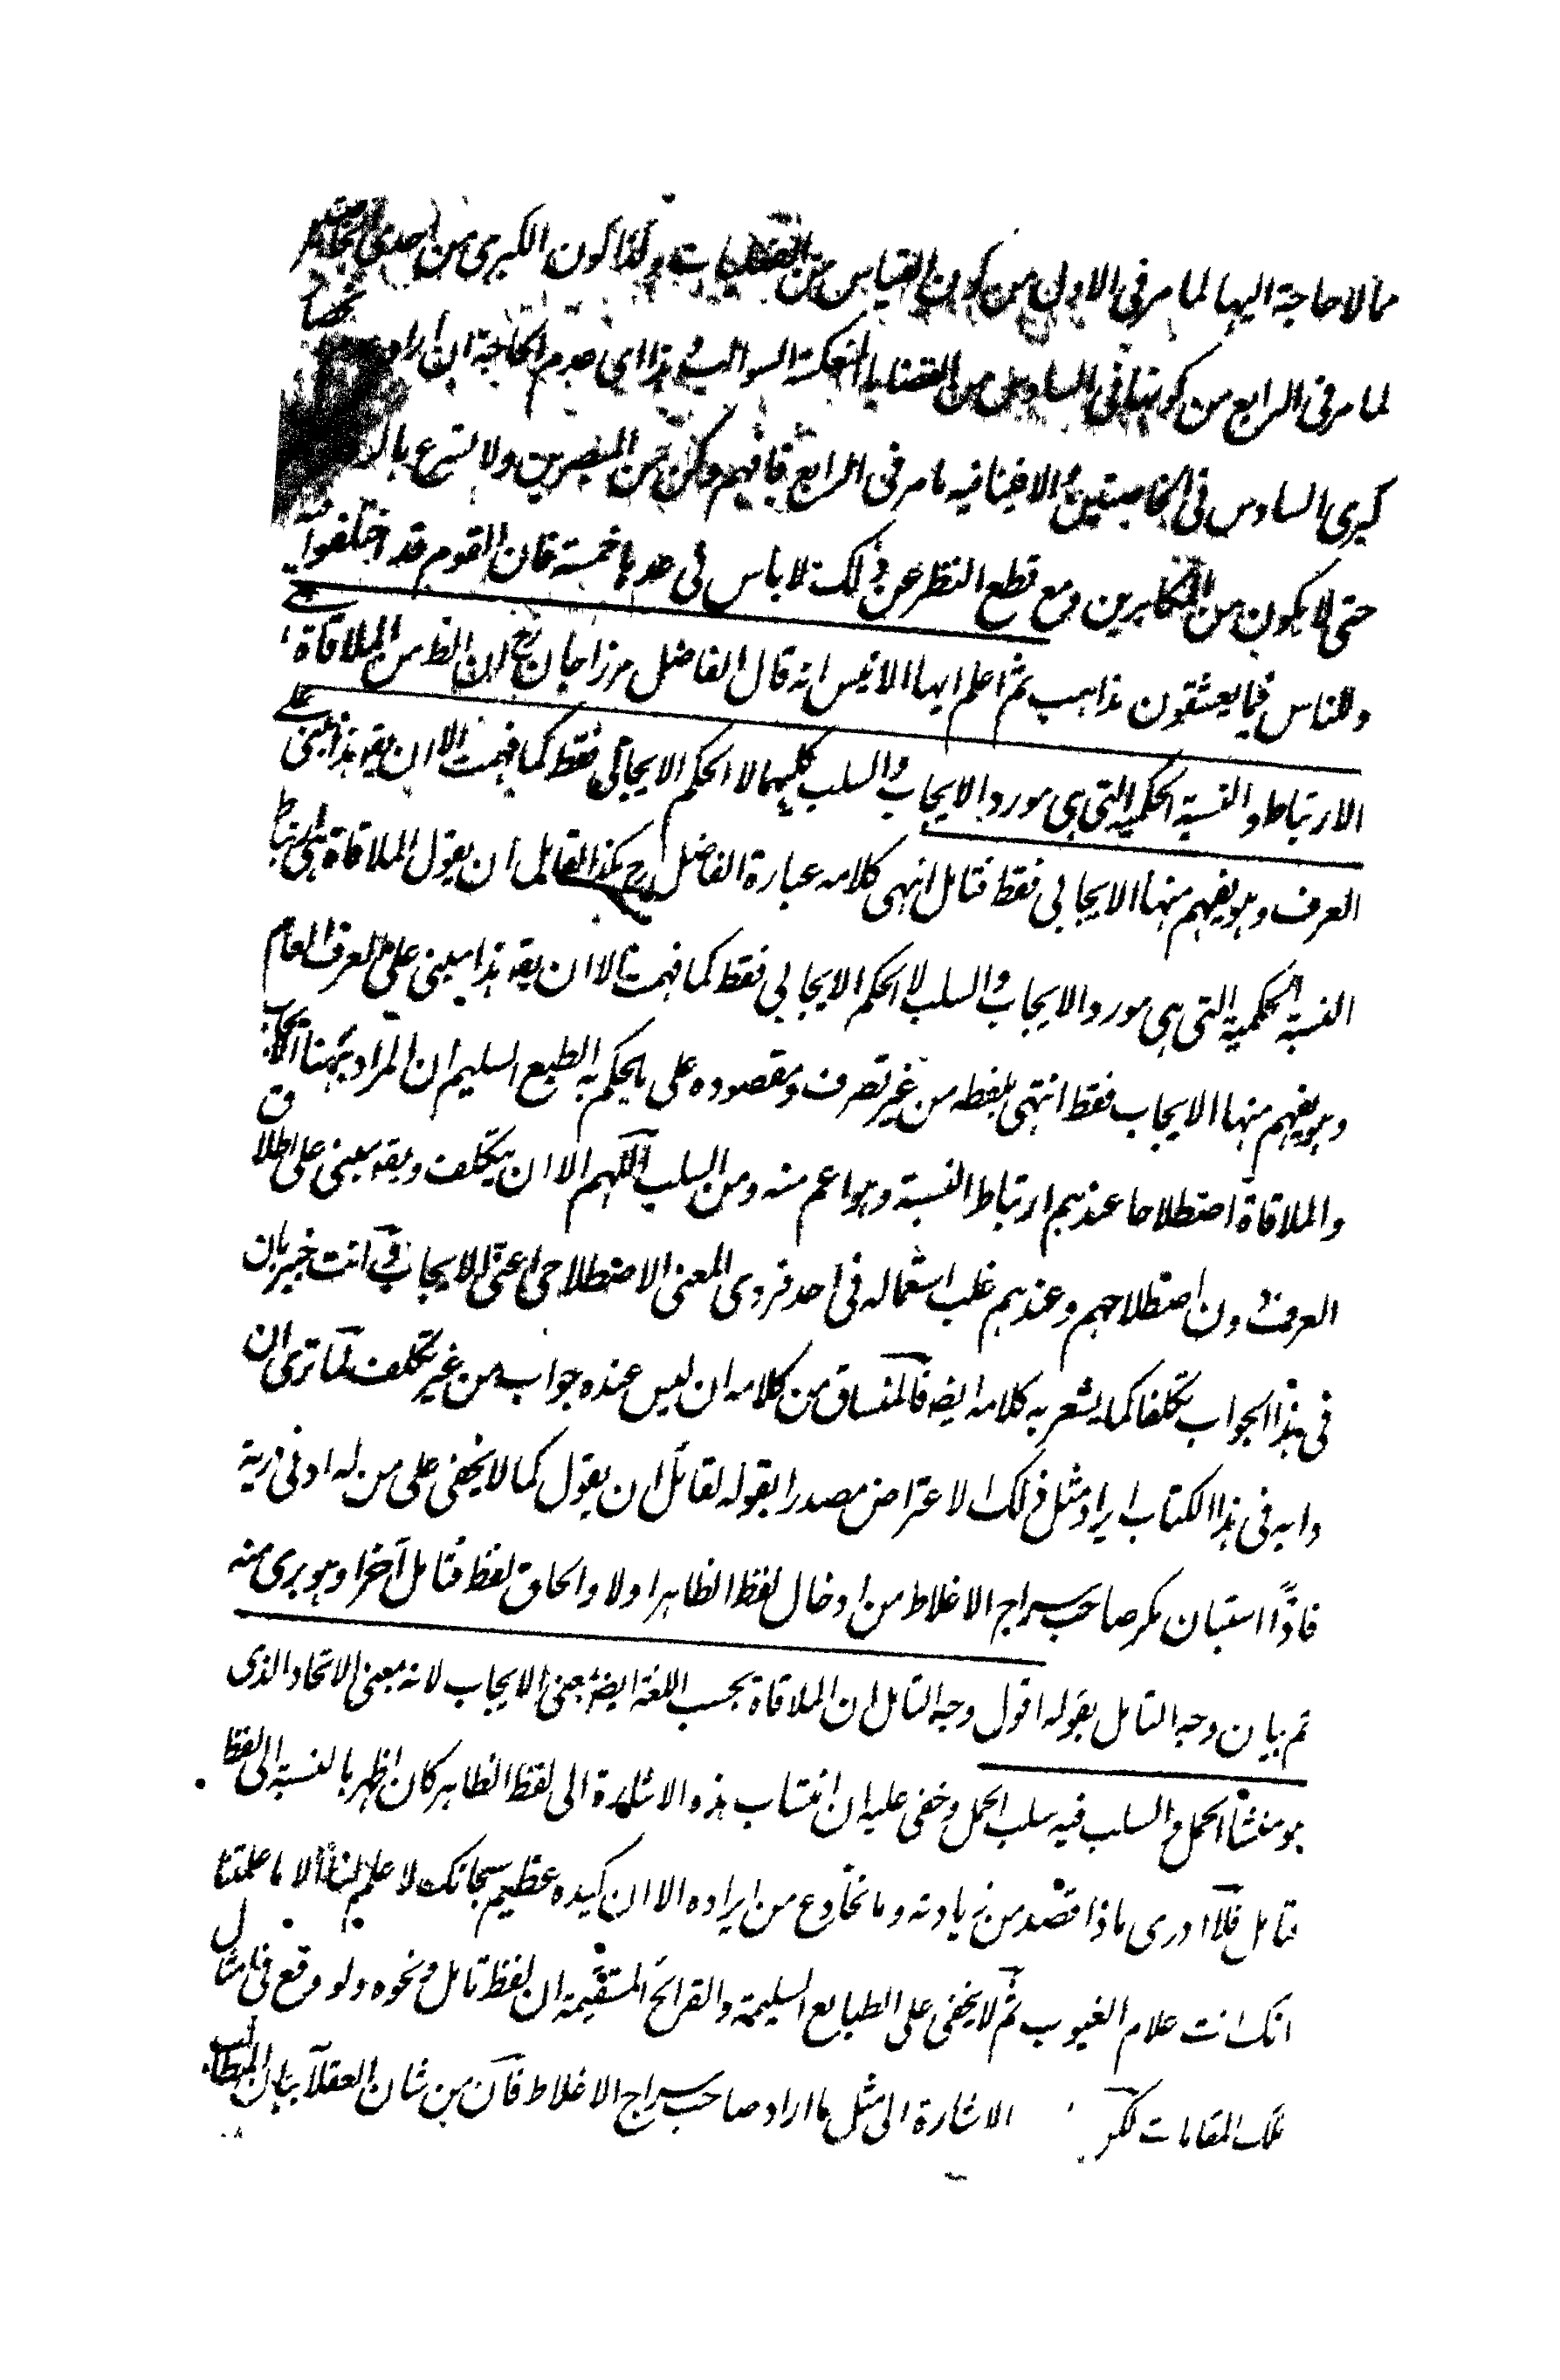 مما لا حاجة اليها لما مر فى الاول من كون القياس من القطعيات ولذا كون الكبرى من احدى
لما مر فى الرابع من كونها فى السادس من القضايا المنعكسة السوالب هذا اى عدم الحاجة ان اراد
كبرى السادس فى الخاصيتين والا فينافيه ما مر فى الرابع فافهم وكن من المبصرين ولا تسرع بالر
حتى لا يكون من المكابرين ومع قطع النظر عن ذلك لا باس فى عدها خمسة فان القوم قد اختلفوا فيه
وللناس فيما يعشقون مذاهب ثم اعلم ايها الانيس انه قال الفاضل مرزا جان رح ان الظ من الملاقاة هى
الارتباط والنسبة الحكمية التى هى مورد الايجاب والسلب كليهما لا الحكم الايجابى فقط كما فهمت الا ان يقه هذا مبنى على
العرف وهو يفهم منها الايجابى فقط فتامل انتهى كلامه عبارة الفاضل رح هكذا لقايل ان يقول الملاقاة هى ارتباط
النسبة الحكمية التى هى مورد الايجاب والسلب لا الحكم الايجابى فقط كما فهمت الا ان يقه هذا مبنى على العرف العام
وهو يفهم منها الايجاب فقط انتهى بلفظه من غير تصرف ومقصوده على ما يحكم به الطبع السليم ان المراد ههنا الايجاب
والملاقاة اصطلاحا عندهم ارتباط النسبة وهو اعم منه ومن السلب اللهم الا ان يتكلف ويقه مبنى على اطلاق
العرف دون اصطلاحهم وعندهم غلب استعماله فى احد فردى المعنى الاصطلاحى اعنى الايجاب وانت خبير بان
فى هذا الجواب تكلفا كما يشعر به كلامه ايضه فالمنساق من كلامه ان ليس عنده جواب من غير تكلف كما ترى ان
دابه فى هذا الكتاب ايراد مثل ذلك الاعتراض مصدرا بقوله لقائل ان يقول كما لا يخفى على من له ادنى درية
فاذا استبان مكر صاحب سراج الاغلاط من ادخال لفظ الظاهر اولا والحاق لفظ فتامل آخرا وهو برى منه
ثم بيان وجه التامل بقوله اقول وجه التامل ان الملاقاة بحسب اللغة ايضه بمعنى الايجاب لانه بمعنى الاتحاد الذى
هو منشأ الحمل والسلب فيه سلب الحمل وخفى عليه ان انتساب هذه الاشارة الى لفظ الظاهر كان اظهر بالنسبة الى لفظ
فتامل فلا ادرى ماذا قصد من زيادته وما تخادع من ايراده الا ان كيده عظيم سبحانك لا علم لنا الا ما علمتنا
انك انت علام الغيوب ثم لا يخفى على الطبايع السليمة والقرائح المستقيمة ان لفظ تامل ونحوه ولو وقع فى امثال
تلك المقامات لكن الاشارة الى مثل ما اراد صاحب سراج الاغلاط فان من شان العقلا بيان المطالب